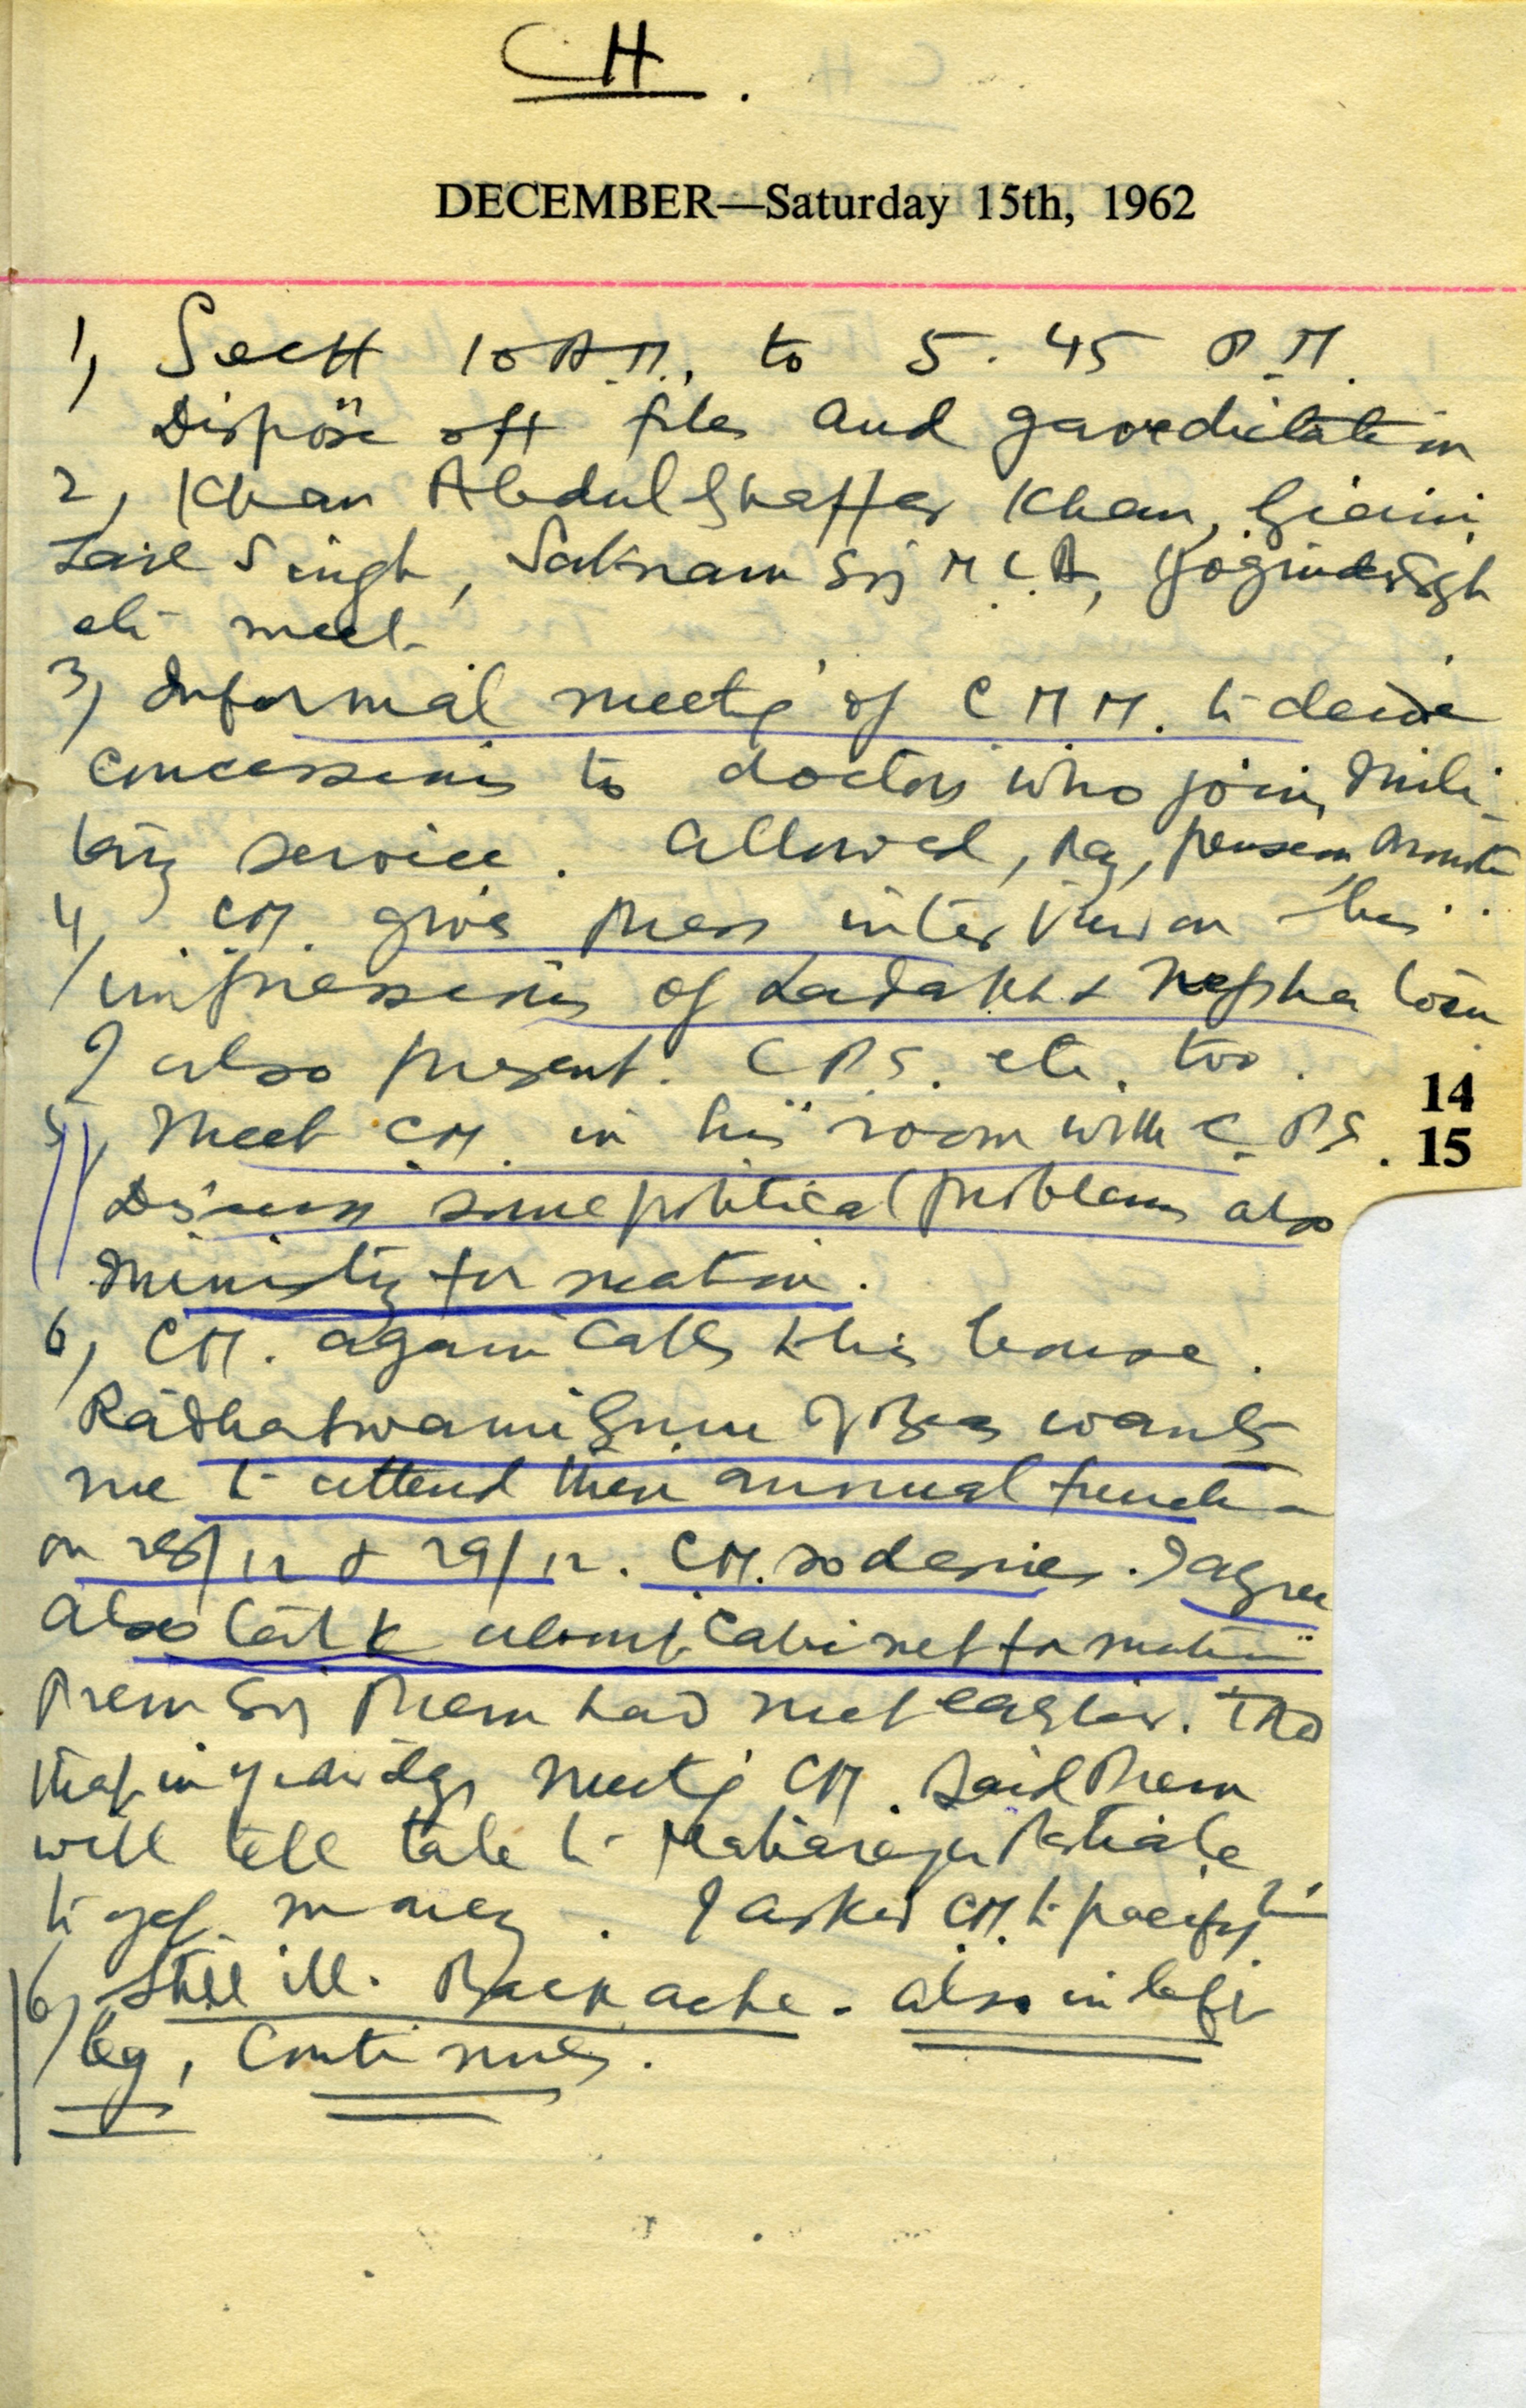 CH.
DECEMBER—Saturday 15th, 1962
1, Sectt 10 A.M. to 5.45 P.M.
Dispose off files and gave dictation
2, Khan Abdul Ghaffar Khan, Giani
Zail Singh, Satnam Sij M.L.A, Joginder Sigh
etc meet
3, Informal meetig of C M M. to decide
concessions to doctors who join mili
tary service. Allowed, Pay, pension
4, CM. gives Press interview on his
impressions of Ladakh & Nepha tour
I also present. C.P.S. etc. too.
14
5, Meet CM. in his room with C.P.S.
15
Discuss some political problems also
ministry formation.
6, CM. again calls to his house.
Radhaswami Guru of Beas wants
me to attend their annual function
on 28/12 & 29/12. CM. so desires. I agree
Also talk about Cabinet formation
Prem Sij Prem had met earlier. Told
that in yesterdays meetig CM. said Prem
will tell tale to Maharaja Patiala
to get money. I asked CM. to pacify him
6, Still ill. Backache. also in left
leg, Continues.